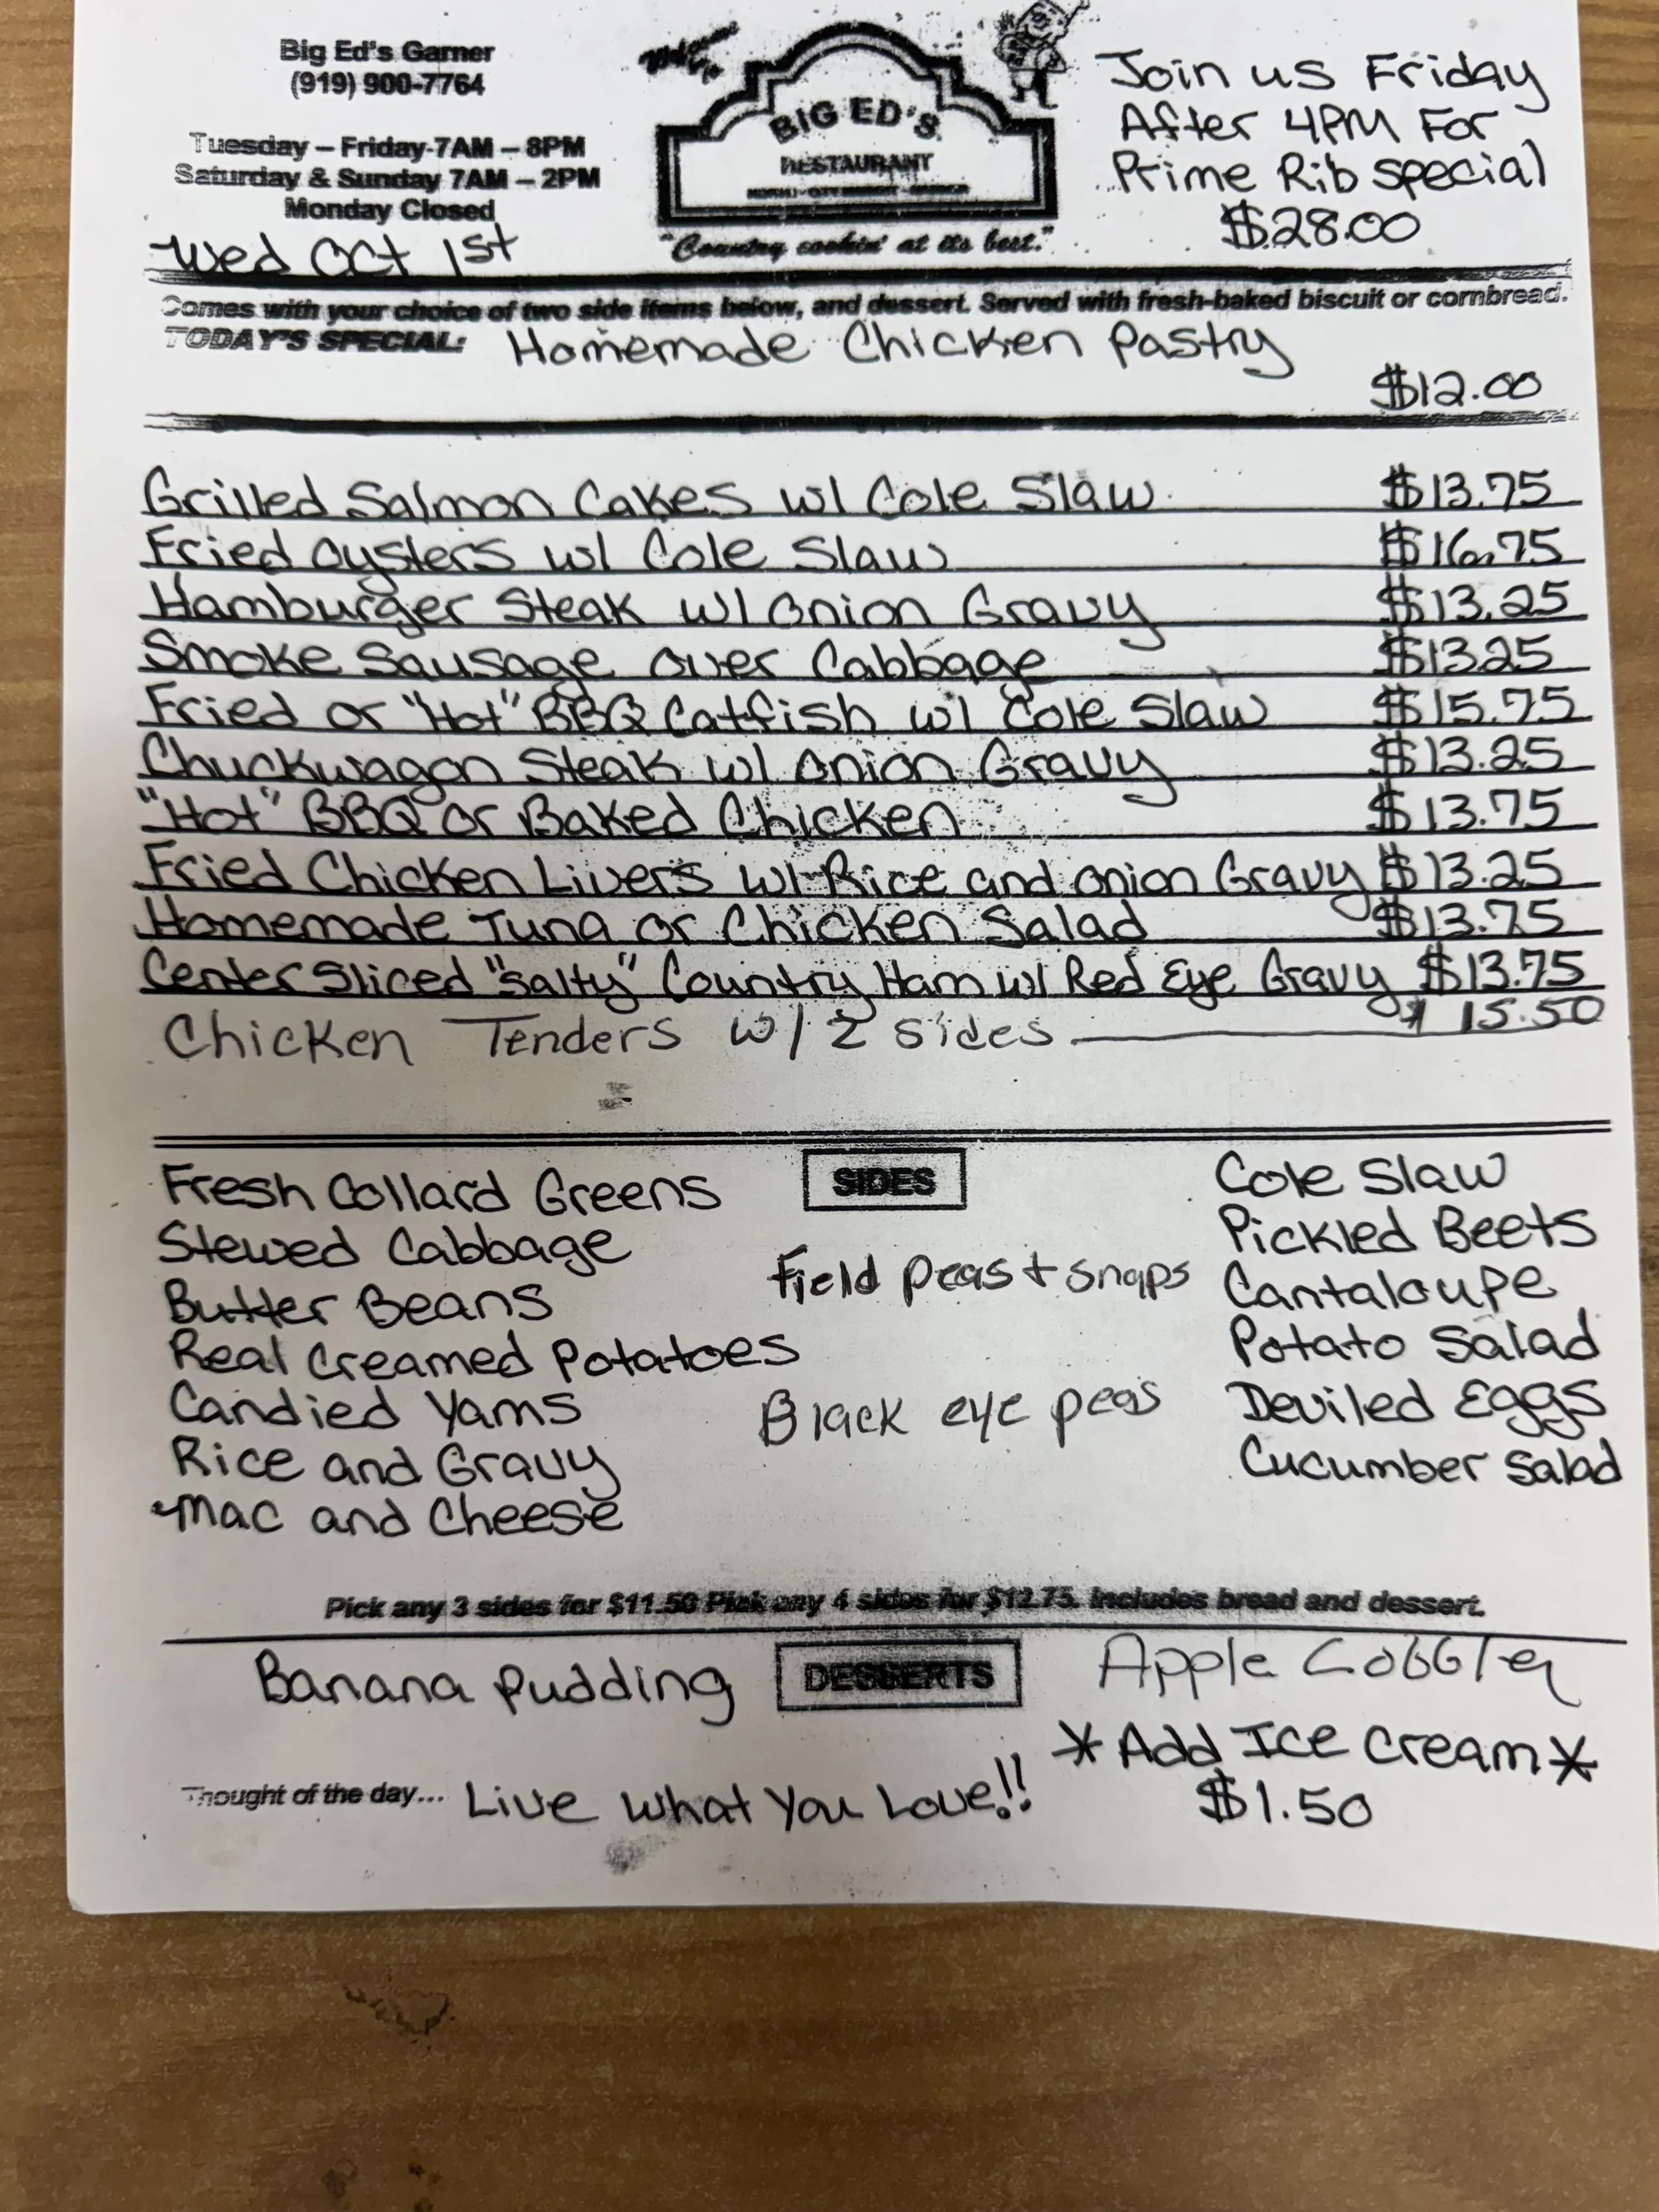 Big Ed's Garner
(919) 900-7764
Tuesday – Friday 7AM – 8PM
Saturday & Sunday 7AM – 2PM
Monday Closed
Wed Oct 1st
Welcome to
BIG ED'S
RESTAURANT
"Country cookin' at its best."
Join us Friday
After 4PM For
Prime Rib special
$28.00
Comes with your choice of two side items below, and dessert. Served with fresh-baked biscuit or cornbread.
TODAY'S SPECIAL: Homemade Chicken Pastry
$12.00
Grilled Salmon Cakes w/ Cole Slaw $13.75
Fried Oysters w/ Cole Slaw $16.75
Hamburger Steak w/ Onion Gravy $13.25
Smoke Sausage over Cabbage $13.25
Fried or "Hot" BBQ Catfish w/ Cole Slaw $15.75
Chuckwagon Steak w/ Onion Gravy $13.25
"Hot" BBQ or Baked Chicken $13.75
Fried Chicken Livers w/ Rice and Onion Gravy $13.25
Homemade Tuna or Chicken Salad $13.75
Center Sliced "Salty" Country Ham w/ Red Eye Gravy $13.75
Chicken Tenders w/ 2 sides $15.50
SIDES
Fresh Collard Greens
Stewed Cabbage
Butter Beans
Real Creamed Potatoes
Candied Yams
Rice and Gravy
Mac and Cheese
Field peas + snaps
Black eye peas
Cole Slaw
Pickled Beets
Cantaloupe
Potato Salad
Deviled Eggs
Cucumber Salad
Pick any 3 sides for $11.50 Pick any 4 sides for $12.75. Includes bread and dessert.
DESSERTS
Banana Pudding
Apple Cobbler
*Add Ice Cream*
$1.50
Thought of the day... Live What You Love!!